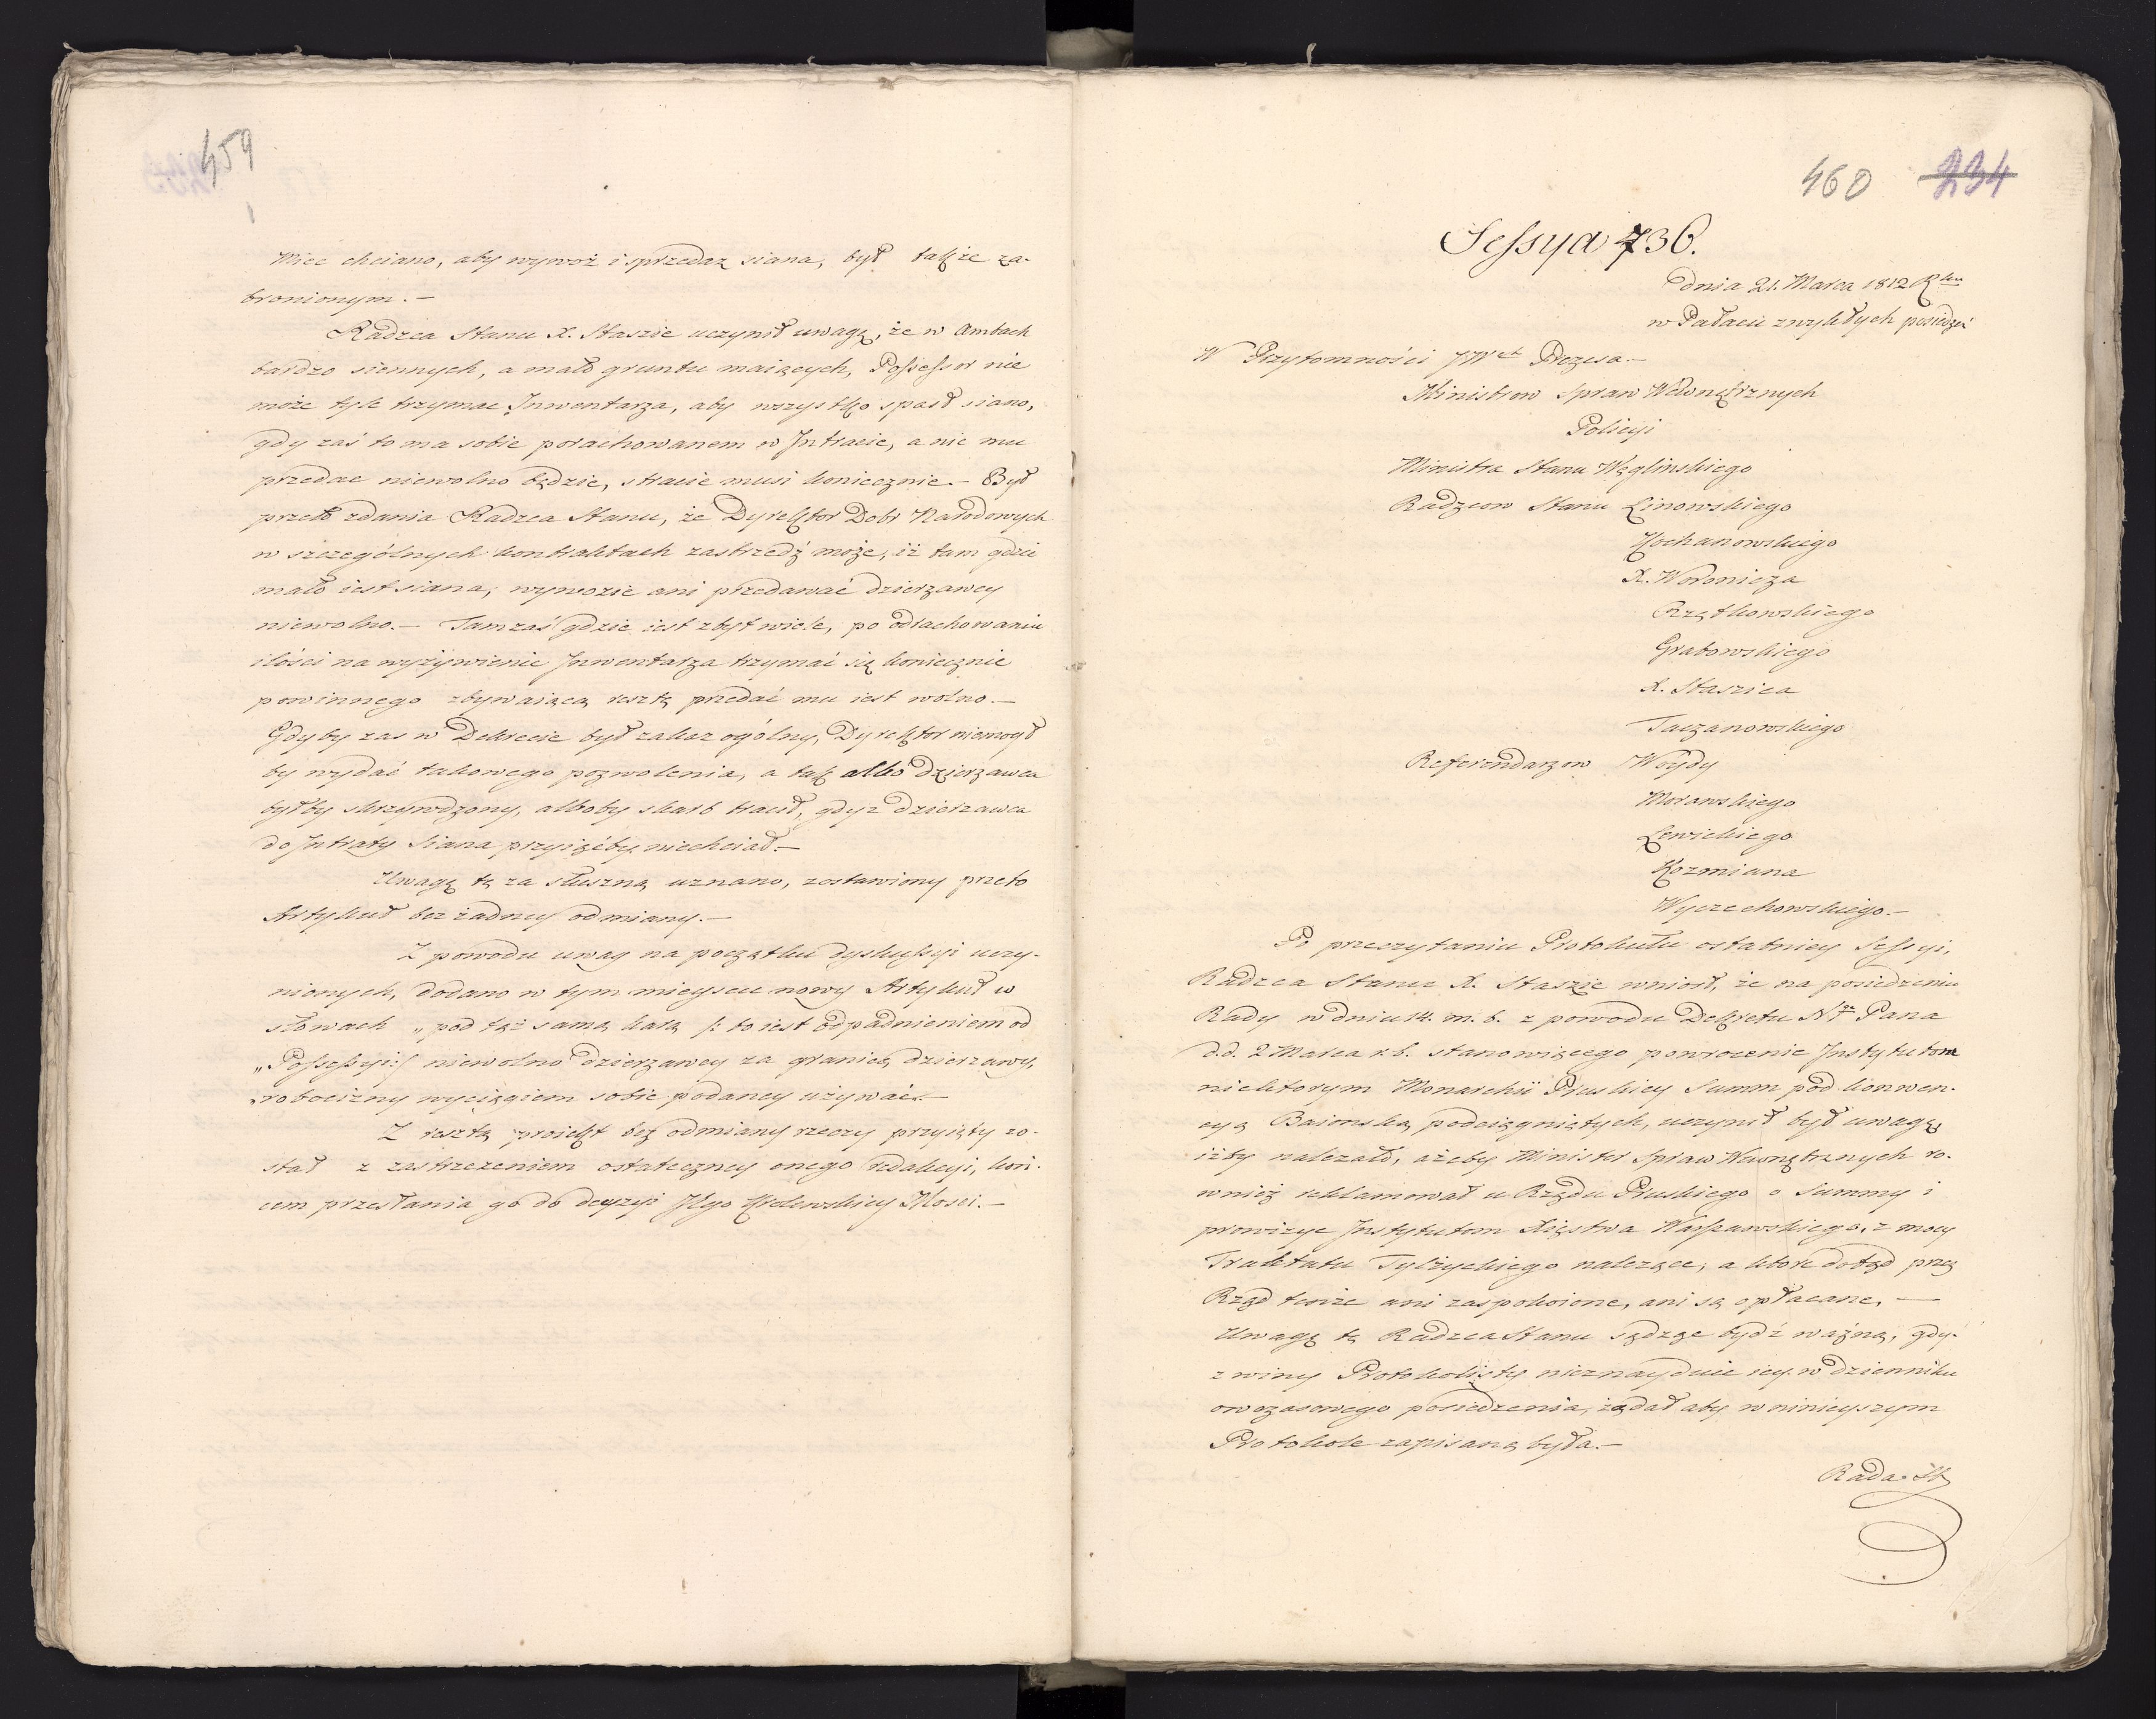 459
Miec chciano, aby wywoz i sprzedaz siana, był także za-
bronionym. —
Radzca Stanu X. Staszic uczynił uwagę, że w Amtach
bardzo siennych, a mało gruntu maiących, Possessor nie
może tyle trzymac Inwentarza, aby wszystko spasł siano,
gdy zaś to ma sobie porachowanem w Intracie, a nic mu
przedac niewolno będzie, stracic musi koniecznie. — Był
przeto zdania Radzca Stanu, że Dyrektor Dobr Narodowych
w szczególnych kontraktach zastrzedz może, iż tam gdzie
mało iest siana, wywozic ani przedawać dzierzawcy
niewolno. — Tam zaś gdzie iest zbyt wiele, po odrachowaniu
ilości na wyżywienie Inwentarza trzymać się koniecznie
powinnego zbywaiącą resztę przedać mu iest wolno. —
Gdyby zas w Dekrecie był zakaz ogólny, Dyrektor niemogł
by wydać takowego pozwolenia, a tak albo dzierzawca
byłby skrzywdzony, alboby skarb tracił, gdyz dzierzawca
do Intraty Siana przyiąćby niechciał. —
Uwagę tę za słuszną uznano, zostawiony przeto
Artykuł bez żadney odmiany. —
Z powodu uwag na początku dyskussyi uczy-
nionych, dodano w tym mieyscu nowy Artykuł w
słowach „pod tąż samą karą /: to iest odpadnieniem od
„Possessyi :/ niewolno dzierzawcy za granicą dzierzawy,
„robocizny wyciągiem sobie podaney używać. —
Z resztą proiekt bez odmiany rzeczy przyięty zo-
stał z zastrzezeniem ostateczney onego redakcyi, koń-
cem przesłania go do decyzyi JKgo Krolewskiey Mosci. —
460 234
Sessya 736.
dnia 21. Marca 1812 Rku
w Pałacu zwykłych posiedzeń
W Przytomności JWch Prezesa —
Ministrow Spraw Wewnętrznych
Policyi
Ministra Stanu Węglinskiego
Radzcow Stanu Linowskiego
Kochanowskiego
X. Woronicza
Rzętkowskiego
Grabowskiego
X. Staszica
Taczanowskiego
Referendarzow Woydy
Morawskiego
Lewickiego
Kozmiana
Wyczechowskiego. —
Po przeczytaniu Protokułu ostatniey Sessyi,
Radzca Stanu X. Staszic wniosł, że na posiedzeniu
Rady w dniu 14. m. b. z powodu Dekretu Ngo Pana
d.d. 2 Marca r.b. stanowiącego powrocenie Instytutom
niektorym Monarchii Pruskiey Summ pod konwen-
cyą Baionską podciągniętych, uczynił był uwagę,
iżby nalezało, ażeby Minister Spraw Wewnętrznych ro-
wnież reklamował u Rządu Pruskiego o Summy i
prowizye Instytutom Xięstwa Warszawskiego, z mocy
Traktatu Tylżyckiego nalezące, a ktore dotąd przez
Rząd tenże ani zaspokoione, ani są opłacane, —
Uwagę tę Radzca Stanu sądząc bydź ważną, gdy
z winy Protokolisty nieznayduie iey w dzienniku
owczasowego posiedzenia, żądał aby w ninieyszym
Protokole zapisaną była. —
Rada St